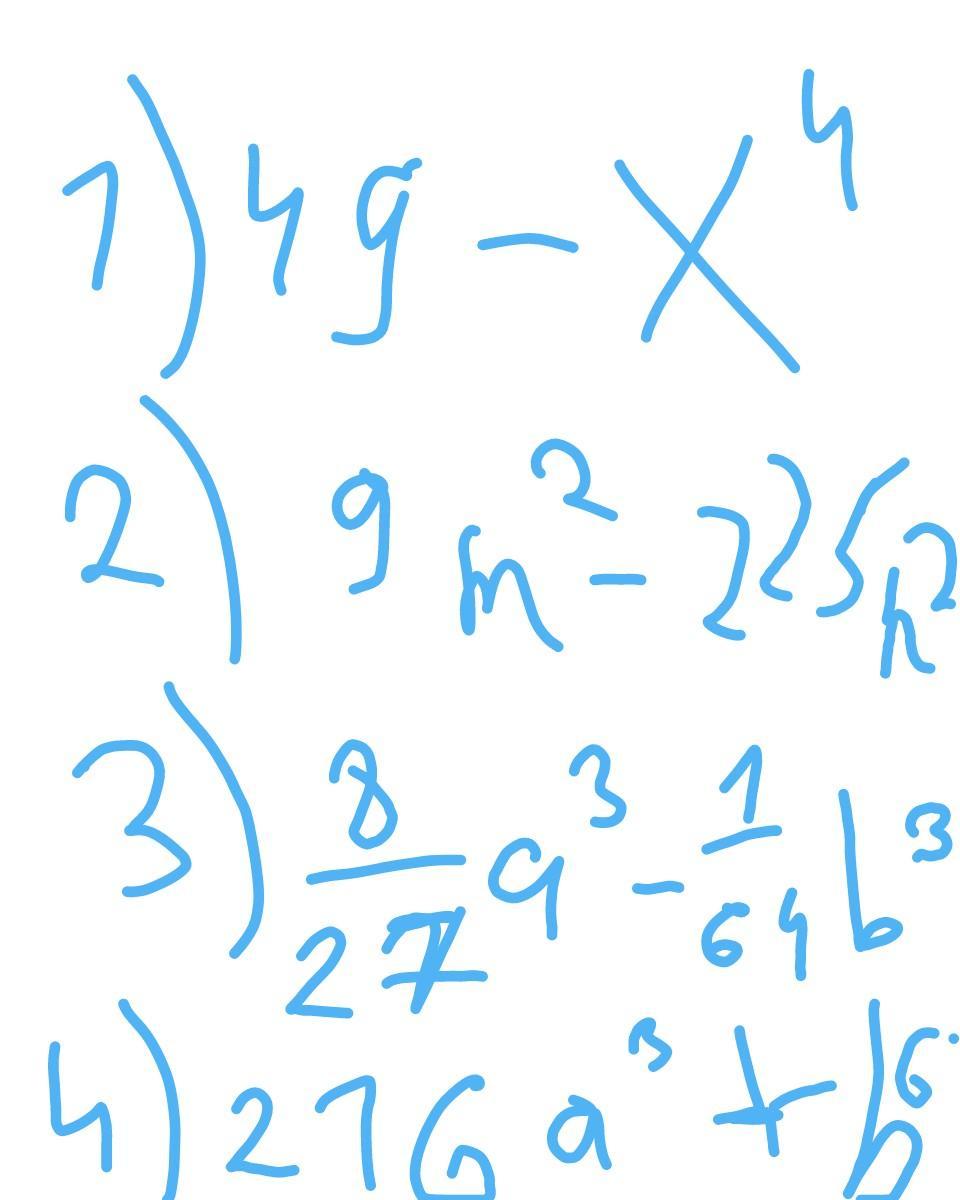 1) 49 - x⁴
2) 9m² - 225n²
3) 8/27 a³ - 1/64 b³
4) 216a³ + b⁶.